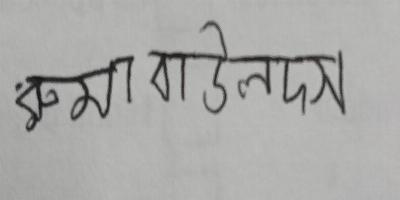 রুমা বাউলদাস